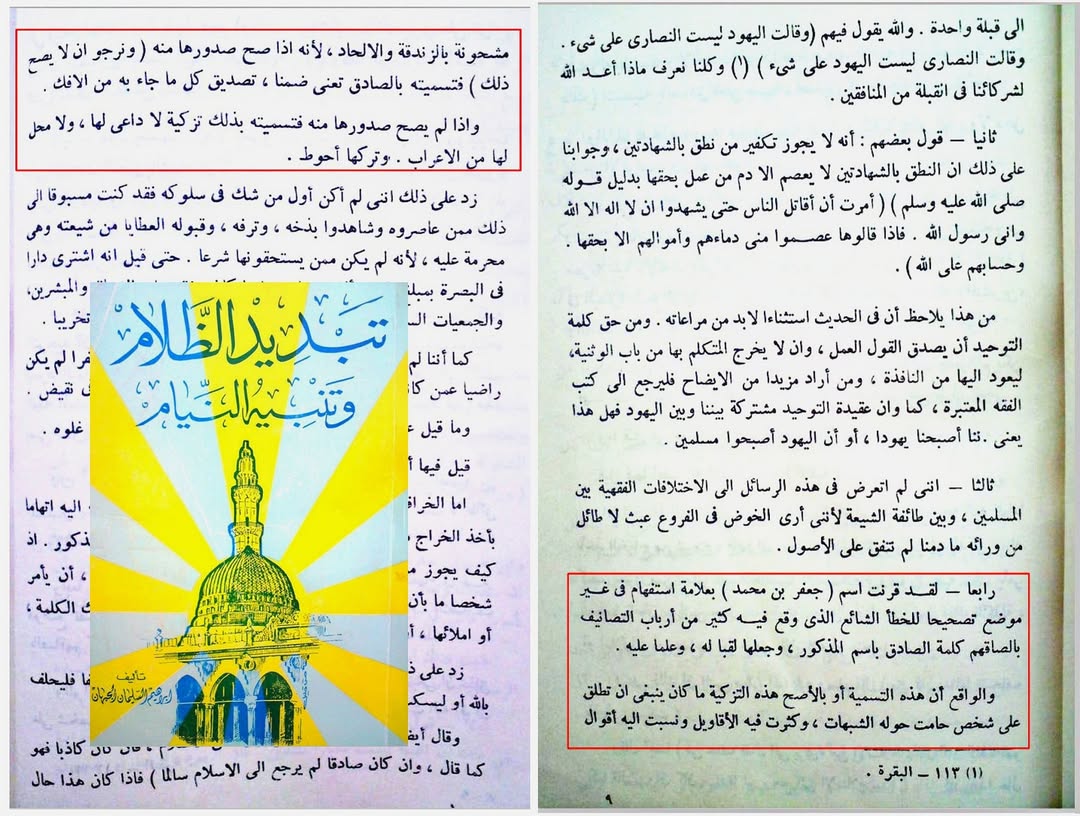 الى قبلة واحدة . والله يقول فيهم ( وقالت اليهود ليست النصارى على شىء .
وقالت النصارى ليست اليهود على شىء ) (١) وكلنا نعرف ماذا أعد الله
لشركائنا فى انقبلة من المنافقين .
ثانيا — قول بعضهم : أنه لا يجوز تكفير من نطق بالشهادتين ، وجوابنا
على ذلك ان النطق بالشهادتين لا يعصم الا دم من عمل بحقها بدليل قوله
صلى الله عليه وسلم ) ( أمرت أن أقاتل الناس حتى يشهدوا ان لا اله الا الله
وانى رسول الله . فاذا قالوها عصموا منى دماءهم وأموالهم الا بحقها .
وحسابهم على الله ) .
من هذا يلاحظ أن فى الحديث استثناءا لابد من مراعاته . ومن حق كلمة
التوحيد أن يصدق القول العمل ، وان لا يخرج المتكلم بها من باب الوثنية،
ليعود اليها من النافذة ، ومن أراد مزيدا من الايضاح فليرجع الى كتب
الفقه المعتبرة ، كما وان عقيدة التوحيد مشتركة بيننا وبين اليهود فهل هذا
يعنى .ننا أصبحنا يهودا ، أو أن اليهود أصبحوا مسلمين .
ثالثا — اننى لم اتعرض فى هذه الرسائل الى الاختلافات الفقهية بين
المسلمين ، وبين طائفة الشيعة لأننى أرى الخوض فى الفروع عبث لا طائل
من ورائه ما دمنا لم نتفق على الأصول .
رابعا — لقد قرنت اسم ( جعفر بن محمد ) بعلامة استفهام فى غير
موضع تصحيحا للخطأ الشائع الذى وقع فيه كثير من أرباب التصانيف
بالصاقهم كلمة الصادق باسم المذكور ، وجعلها لقبا له ، وعلما عليه .
والواقع أن هذه التسمية أو بالأصح هذه التزكية ما كان ينبغى ان تطلق
على شخص حامت حوله الشبهات ، وكثرت فيه الأقاويل ونسبت اليه أقوال
(١) ١١٣ — البقرة .
٩
مشحونة بالزندقة والالحاد ، لأنه اذا صح صدورها منه ( ونرجو ان لا يصح
ذلك ) فتسميته بالصادق تعنى ضمنا ، تصديق كل ما جاء به من الافك .
واذا لم يصح صدورها منه فتسميته بذلك تزكية لا داعى لها ، ولا محل
لها من الاعراب . وتركها أحوط .
زد على ذلك اننى لم أكن أول من شك فى سلوكه فقد كنت مسبوقا الى
ذلك ممن عاصروه وشاهدوا بذخه ، وترفه ، وقبوله العطايا من شيعته وهى
محرمة عليه ، لأنه لم يكن ممن يستحقونها شرعا . حتى قيل انه اشترى دارا
فى البصرة والمبشرين،
والجمعيات تخريبا .
كما أننا لم لم يكن
راضيا عمن نقيض .
وما قيل غلوه .
قيل فيها
اما اليه اتهاما
بأخذ الخراج اذ
كيف يجوز ، أن يأمر
شخصا ما الكلمة ،
أو املائها ،
زد على فليحلف
بالله أو
وقال كان كاذبا فهو
كما قال ، وان كان صادقا لم يرجع الى الاسلام سالما ) فاذا كان هذا حال
تبديد الظلام
وتنبيه النيام
تأليف
ابراهيم السليمان الجبهان